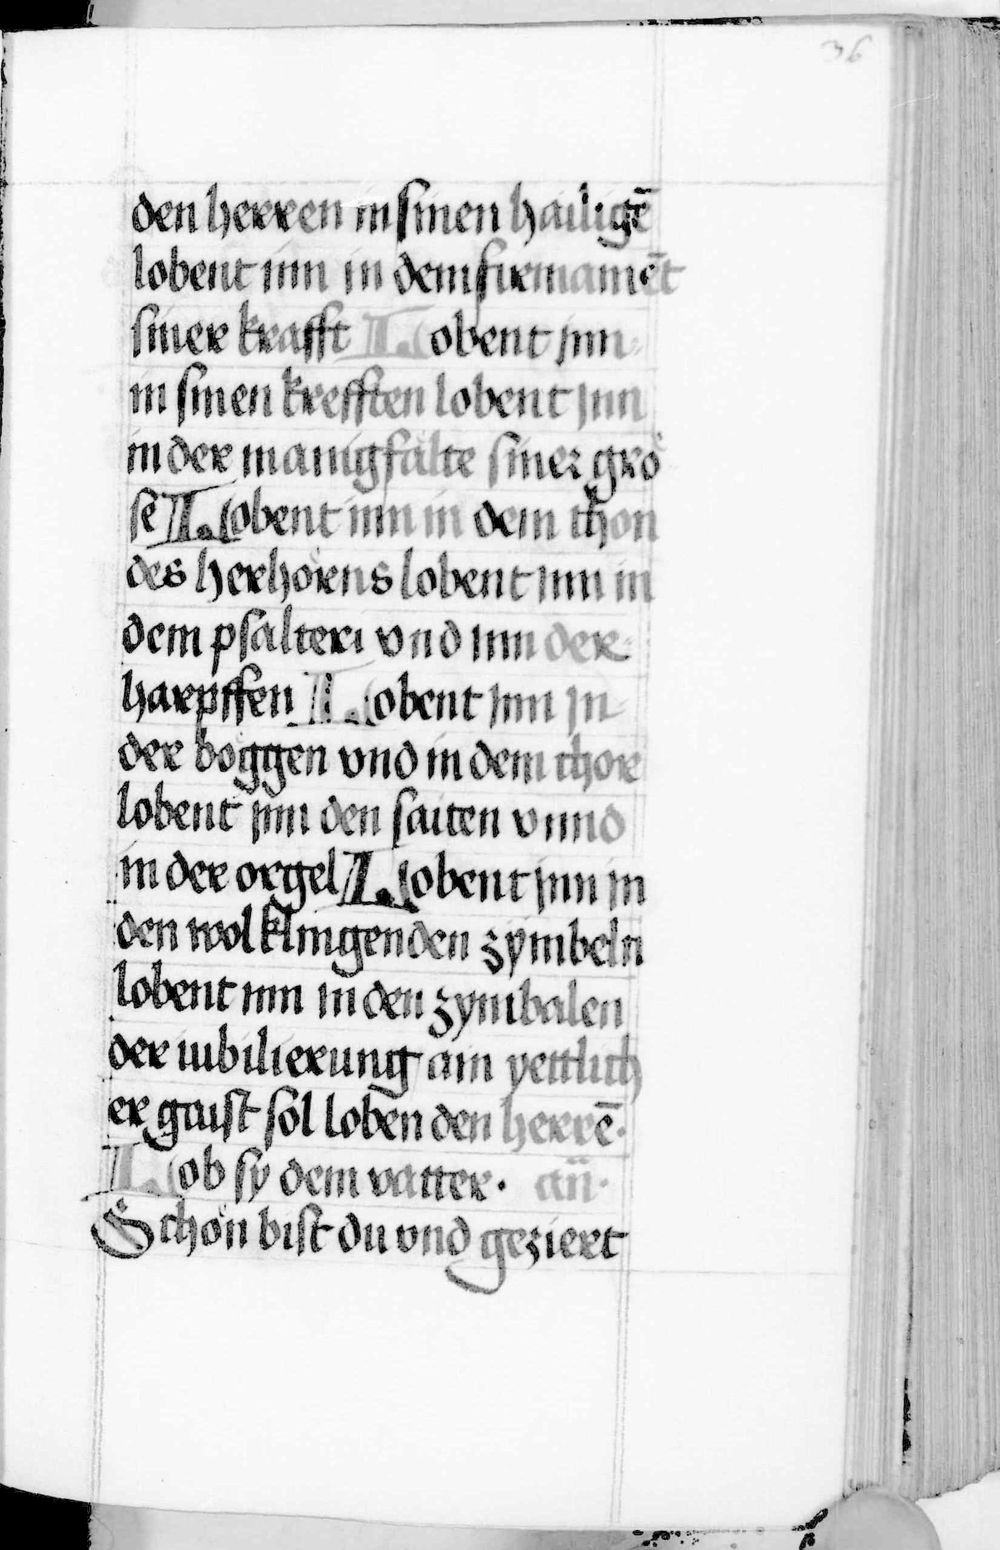 36
den herren in sinen hailigē
lobent inn in dem firmamēt
siner krafft Lobent jnn
in sinen krefften lobent jnn
in der manigfalte siner grö
se Lobent inn in dem thon
des herhorens lobent jnn in
dem psalteri vnd inn der
harpffen Lobent jnn jn
der boggen vnd in dem chore
lobent jnn den saiten vnnd
in der orgel Lobent jnn in
den wol klingenden zymbeln
lobent inn in den zymbalen
der iubilierung ain yettlich
er gaist sol loben den herrē·
Lob sy dem vatter· añ·
Schön bist du vnd geziert